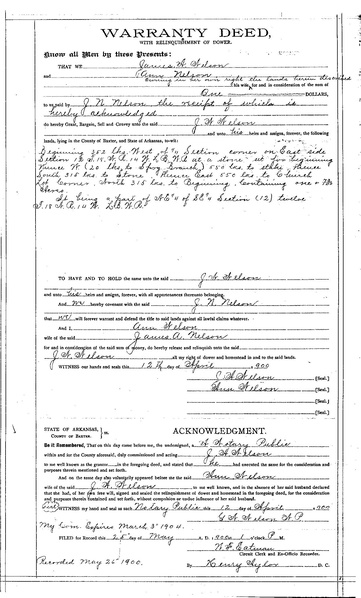 WARRANTY DEED,
WITH RELINQUISHMENT OF DOWER.
Know all Men by these Presents:
THAT WE James A. Nelson
and Ann Nelson
owning in her own right the lands herein described
his wife, for and in consideration of the sum of
One DOLLARS,
to us paid by J. N. Nelson the receipt of which is
hereby acknowledged
do hereby Grant, Bargain, Sell and Convey unto the said J. N. Nelson
and unto his heirs and assigns, forever, the following
lands, lying in the County of Baxter, and State of Arkansas, to-wit:
Beginning 252 lks. West of 1/4 Section corner on East side
Section 12 T. 18. N. R. 14 W. at a stone set for beginning
thence W. 120 lks. to Spg branch, 550 lks to stake, thence
South 315 lks. to Stone, thence East 550 lks. to Church
Lot Corner. North 315 lks. to Beginning, Containing one &
Acres.
It being a part of NE 1/4 of SE 1/4 Section (12) twelve
T. 18 N. R. 14 W.
TO HAVE AND TO HOLD the same unto the said J. N. Nelson
and unto his heirs and assigns, forever, with all appurtenances thereunto belonging.
And we hereby covenant with the said J. N. Nelson
that we will forever warrant and defend the title to said lands against all lawful claims whatever.
And I, Ann Nelson
wife of the said James A. Nelson
for and in consideration of the said sum of money, do hereby release and relinquish unto the said
J. N. Nelson all my right of dower and homestead in and to the said lands.
WITNESS our hands and seals this 12th day of April 1900
J. A. Nelson [Seal.]
Ann Nelson [Seal.]
[Seal.]
[Seal.]
STATE OF ARKANSAS, ss.
COUNTY OF BAXTER.
ACKNOWLEDGMENT.
Be it Remembered, That on this day came before me, the undersigned, a Notary Public
within and for the County aforesaid, duly commissioned and acting J. A. Nelson
to me well known as the grantor in the foregoing deed, and stated that he had executed the same for the consideration and
purposes therein mentioned and set forth.
And on the same day also voluntarily appeared before me the said Ann Nelson
wife of the said J. A. Nelson to me well known, and in the absence of her said husband declared
that she had, of her own free will, signed and sealed the relinquishment of dower and homestead in the foregoing deed, for the consideration
and purposes therein mentioned and set forth, without compulsion or undue influence of her said husband.
WITNESS my hand and seal as such Notary Public on this 12 day of April 1900
G. W. Nelson N. P.
My Com. Expires March 3 1904.
FILED for Record this 25 day of May A. D. 1900 at 1 o'clock P. M.
W. F. Eatman
Circuit Clerk and Ex-Officio Recorder.
Recorded May 25 1900. By Henry D. C.